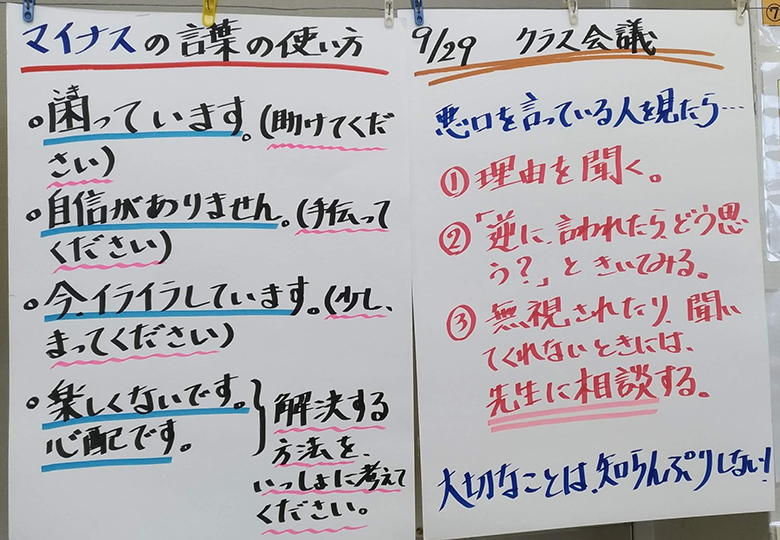 マイナスの言葉の使い方
。困っています。(助けてくだ
こま
さい)
。自信がありません。(手伝って
ください)
。今、イライラしています。(少し、
まってください)
。楽しくないです。
心配です。
解決する
方法を、
いっしょに考えて
ください。
9/29 クラス会議
悪口を言っている人を見たら…
①理由を聞く。
②「逆に、言われたら、どう思
う?」ときいてみる。
③無視されたり、聞い
てくれないときには、
先生に相談する。
大切なことは、知らんぷりしない!
⑦